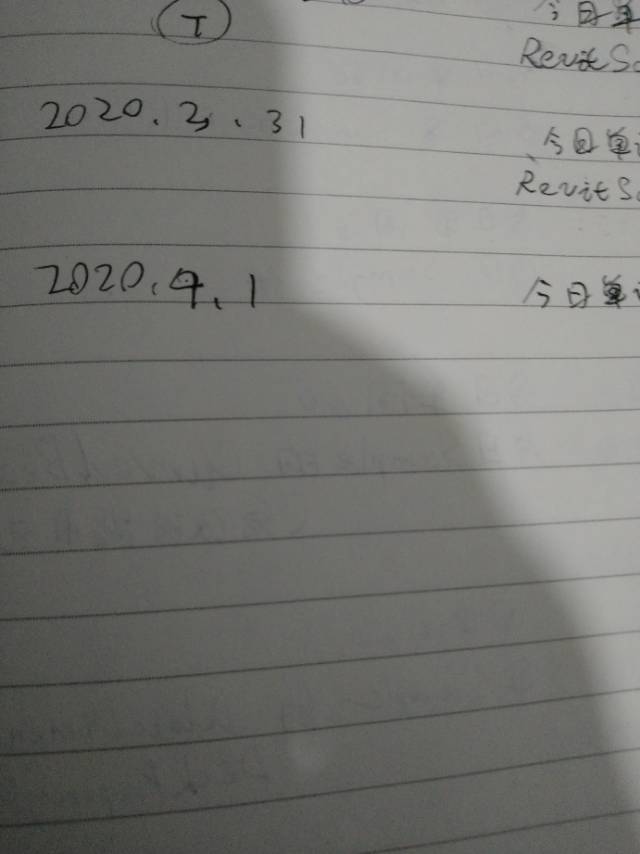 T
今日单
Revit S
2020.3.31
今日单
Revit S
2020.4.1
今日单